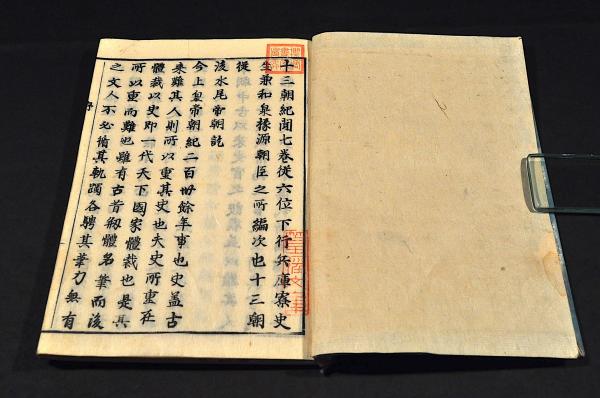 十三朝紀聞七巻從六位下行兵庫寮史
生兼和泉掾源朝臣之所編次也十三朝
從
後水尾帝朝訖
今上皇帝朝紀二百卌餘年事也史蓋古
来難其人則所以重其史也夫史所重在
體裁以史即一代天下國家體裁也是其
所以重而難也雖有古昔剏體名筆而後
之文人不必循其軌躅各騁其筆力無有